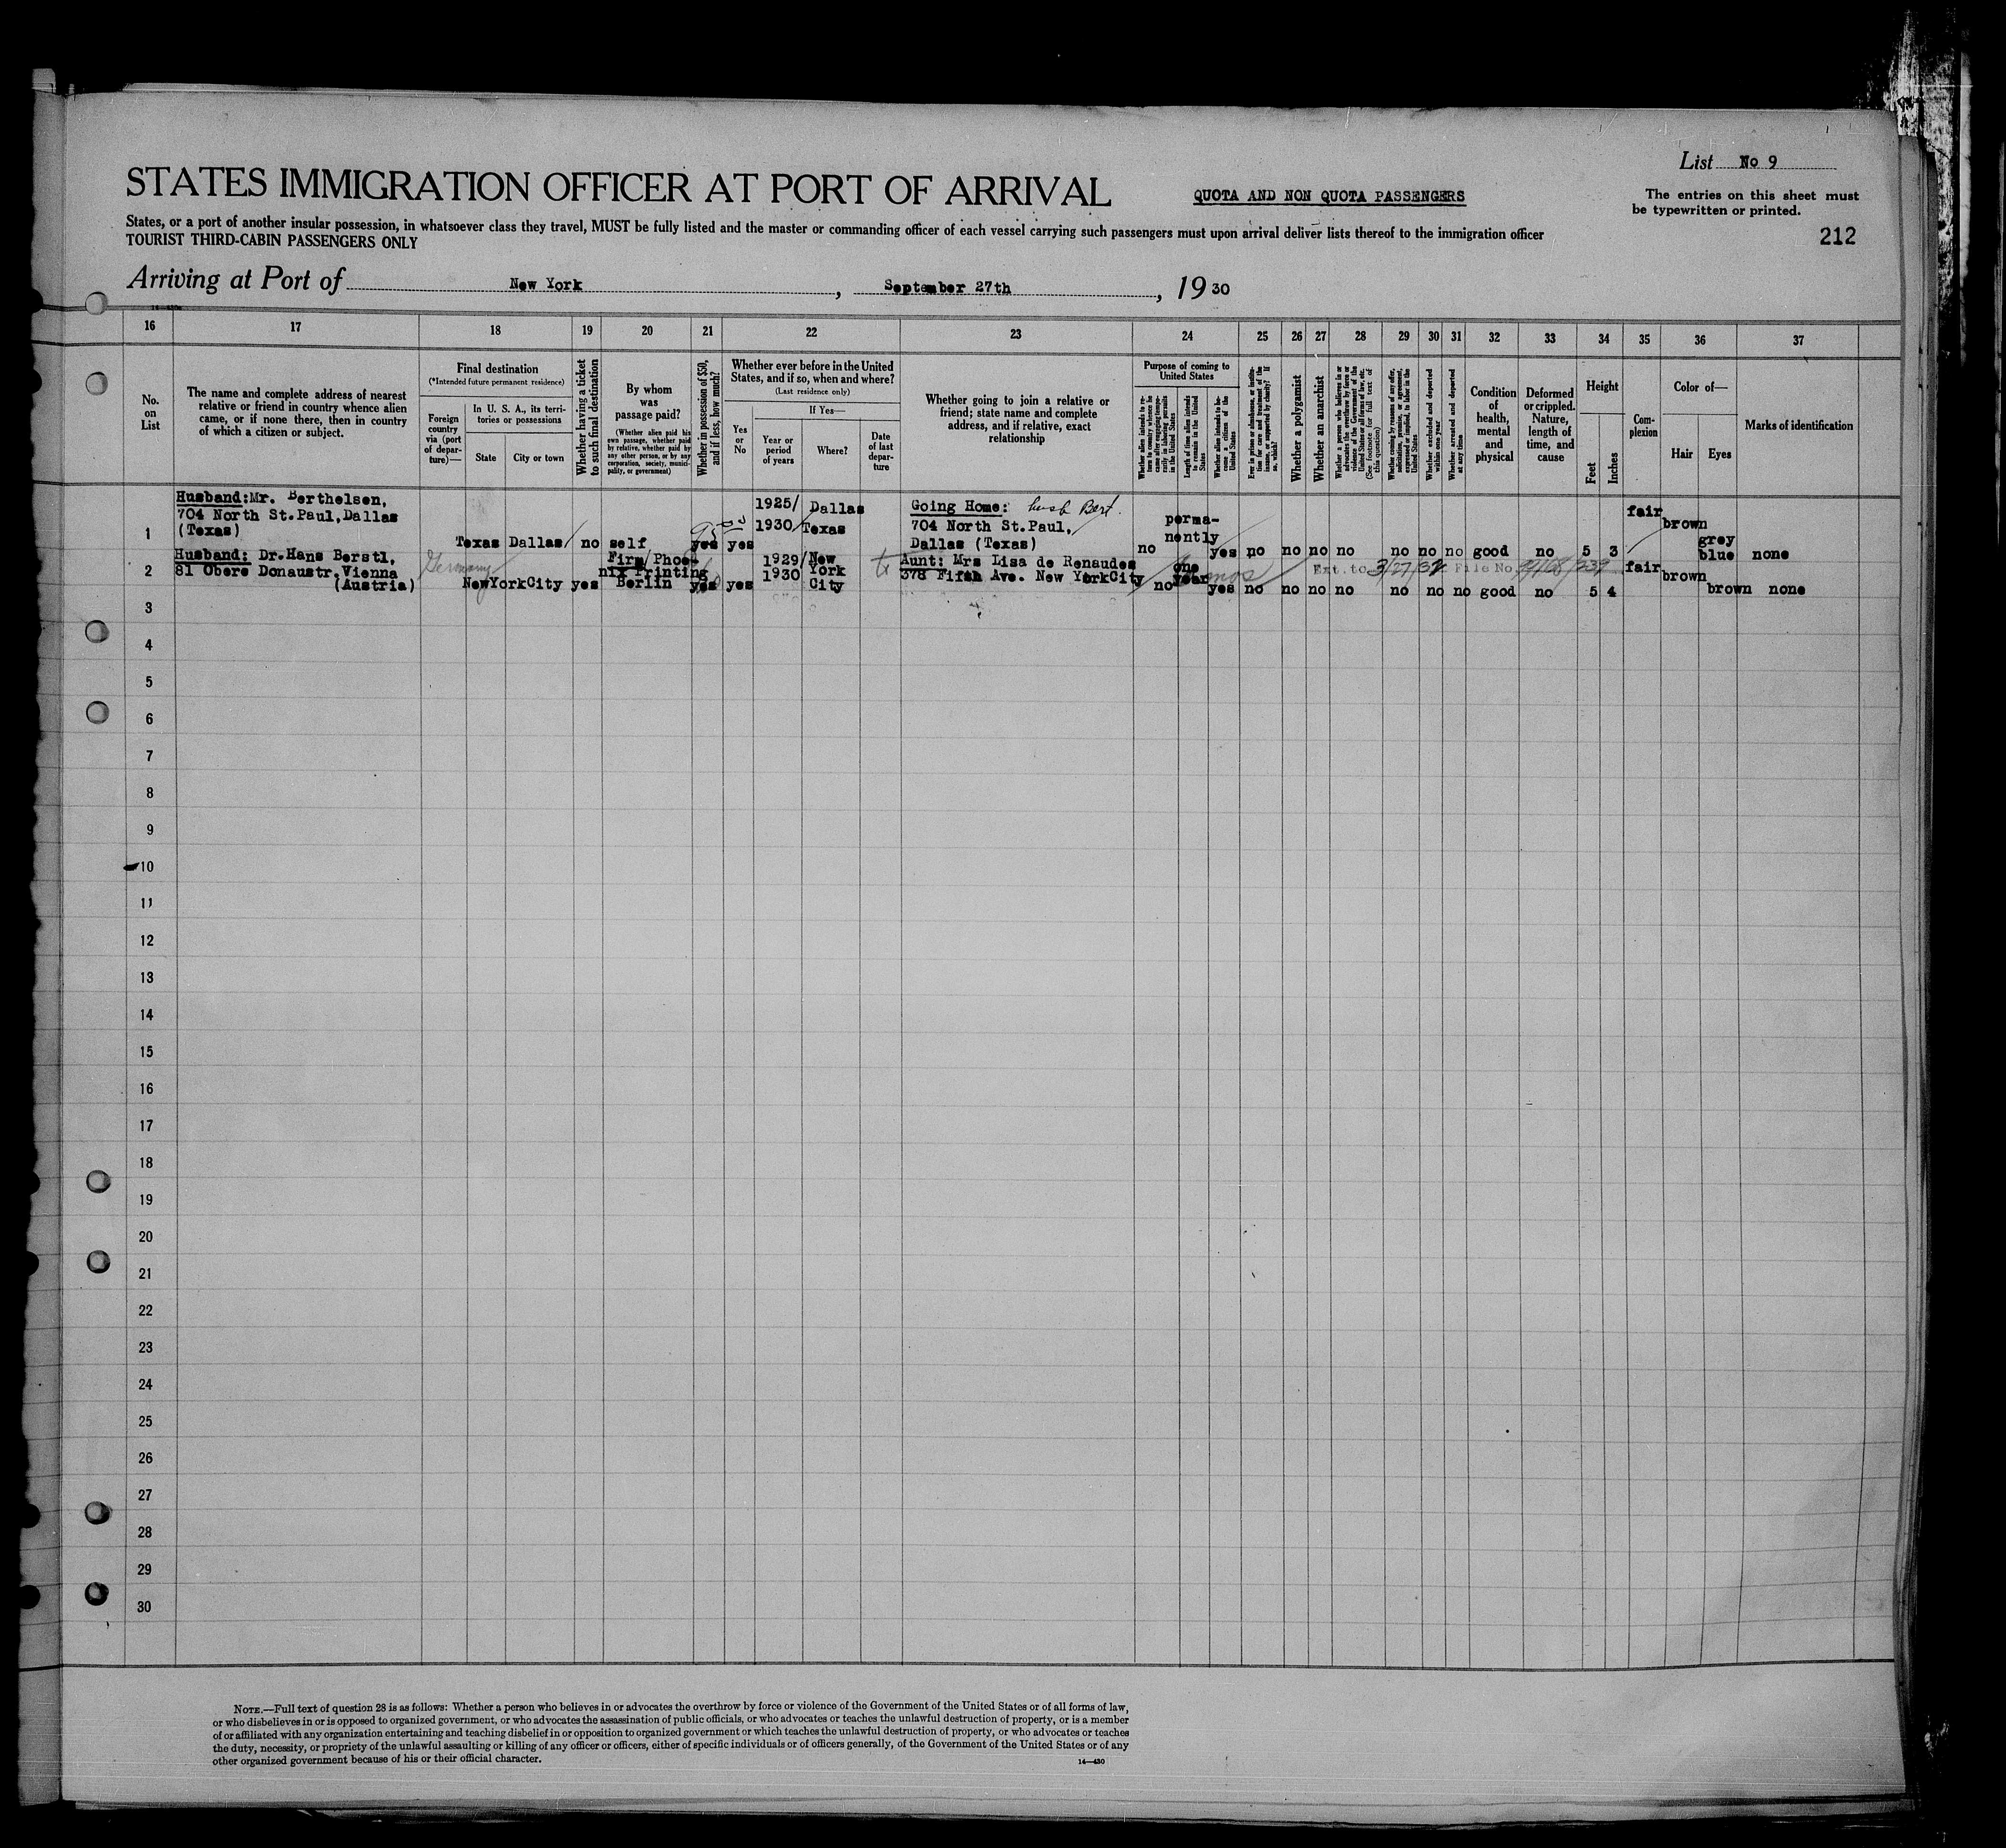 List No 9
STATES IMMIGRATION OFFICER AT PORT OF ARRIVAL
QUOTA AND NON QUOTA PASSENGERS
The entries on this sheet must
be typewritten or printed.
States, or a port of another insular possession, in whatsoever class they travel, MUST be fully listed and the master or commanding officer of each vessel carrying such passengers must upon arrival deliver lists thereof to the immigration officer
TOURIST THIRD-CABIN PASSENGERS ONLY
212
Arriving at Port of New York, September 27th, 19 30
16 17 18 19 20 21 22 23 24 25 26 27 28 29 30 31 32 33 34 35 36 37
No.
on
List
The name and complete address of nearest
relative or friend in country whence alien
came, or if none there, then in country
of which a citizen or subject.
Final destination
(*Intended future permanent residence)
Foreign
country
via (port
of depar-
ture)—
In U. S. A., its terri-
tories or possessions
State
City or town
Whether having a ticket
to such final destination
By whom
was
passage paid?
(Whether alien paid his
own passage, whether paid
by relative, whether paid by
any other person, or by any
corporation, society, munici-
pality, or government)
Whether in possession of $50,
and if less, how much?
Whether ever before in the United
States, and if so, when and where?
(Last residence only)
Yes
or
No
If Yes—
Year or
period
of years
Where?
Date
of last
depar-
ture
Whether going to join a relative or
friend; state name and complete
address, and if relative, exact
relationship
Purpose of coming to
United States
Whether alien intends to re-
turn to country whence he
came after engaging tempo-
rarily in laboring pursuits
in the United States
Length of time alien intends
to remain in the United
States
Whether alien intends to be-
come a citizen of the
United States
Ever in prison or almshouse, or institu-
tion for care and treatment of the
insane, or supported by charity? If
so, which?
Whether a polygamist
Whether an anarchist
Whether a person who believes in or
advocates the overthrow by force or
violence of the Government of the
United States or all forms of law, etc.
(See footnote for full text of
this question)
Whether coming by reasons of any offer,
solicitation, promise, or agreement,
expressed or implied, to labor in the
United States
Whether excluded and deported
within one year
Whether arrested and deported
at any time
Condition
of
health,
mental
and
physical
Deformed
or crippled.
Nature,
length of
time, and
cause
Height
Feet
Inches
Com-
plexion
Color of—
Hair
Eyes
Marks of identification
1
Husband: Mr. Berthelsen,
704 North St.Paul, Dallas
(Texas)
Texas Dallas no self yes yes
1925/
1930
Dallas
Texas
Going Home: husb Bert.
704 North St.Paul,
Dallas (Texas)
no
perma-
nently
yes no no no no no no no good no 5 3
fair
brown
grey
blue
none
2
Husband: Dr.Hans Berstl,
81 Obere Donaustr.Vienna
(Austria)
Germany
NewYorkCity yes
Firm/Phoe-
nix Printing
Berlin
yes yes
1929/
1930
New
York
City
Aunt: Mrs Lisa de Renaudes
378 Fifth Ave. New YorkCity
no
one
year
mos
yes no no no no no no no good no 5 4
Ext. to 3/27/32 File No.
fair
brown
brown none
3
4
5
6
7
8
9
10
11
12
13
14
15
16
17
18
19
20
21
22
23
24
25
26
27
28
29
30
NOTE.—Full text of question 28 is as follows: Whether a person who believes in or advocates the overthrow by force or violence of the Government of the United States or of all forms of law,
or who disbelieves in or is opposed to organized government, or who advocates the assassination of public officials, or who advocates or teaches the unlawful destruction of property, or is a member
of or affiliated with any organization entertaining and teaching disbelief in or opposition to organized government or which teaches the unlawful destruction of property, or who advocates or teaches
the duty, necessity, or propriety of the unlawful assaulting or killing of any officer or officers, either of specific individuals or of officers generally, of the Government of the United States or of any
other organized government because of his or their official character.
14—430